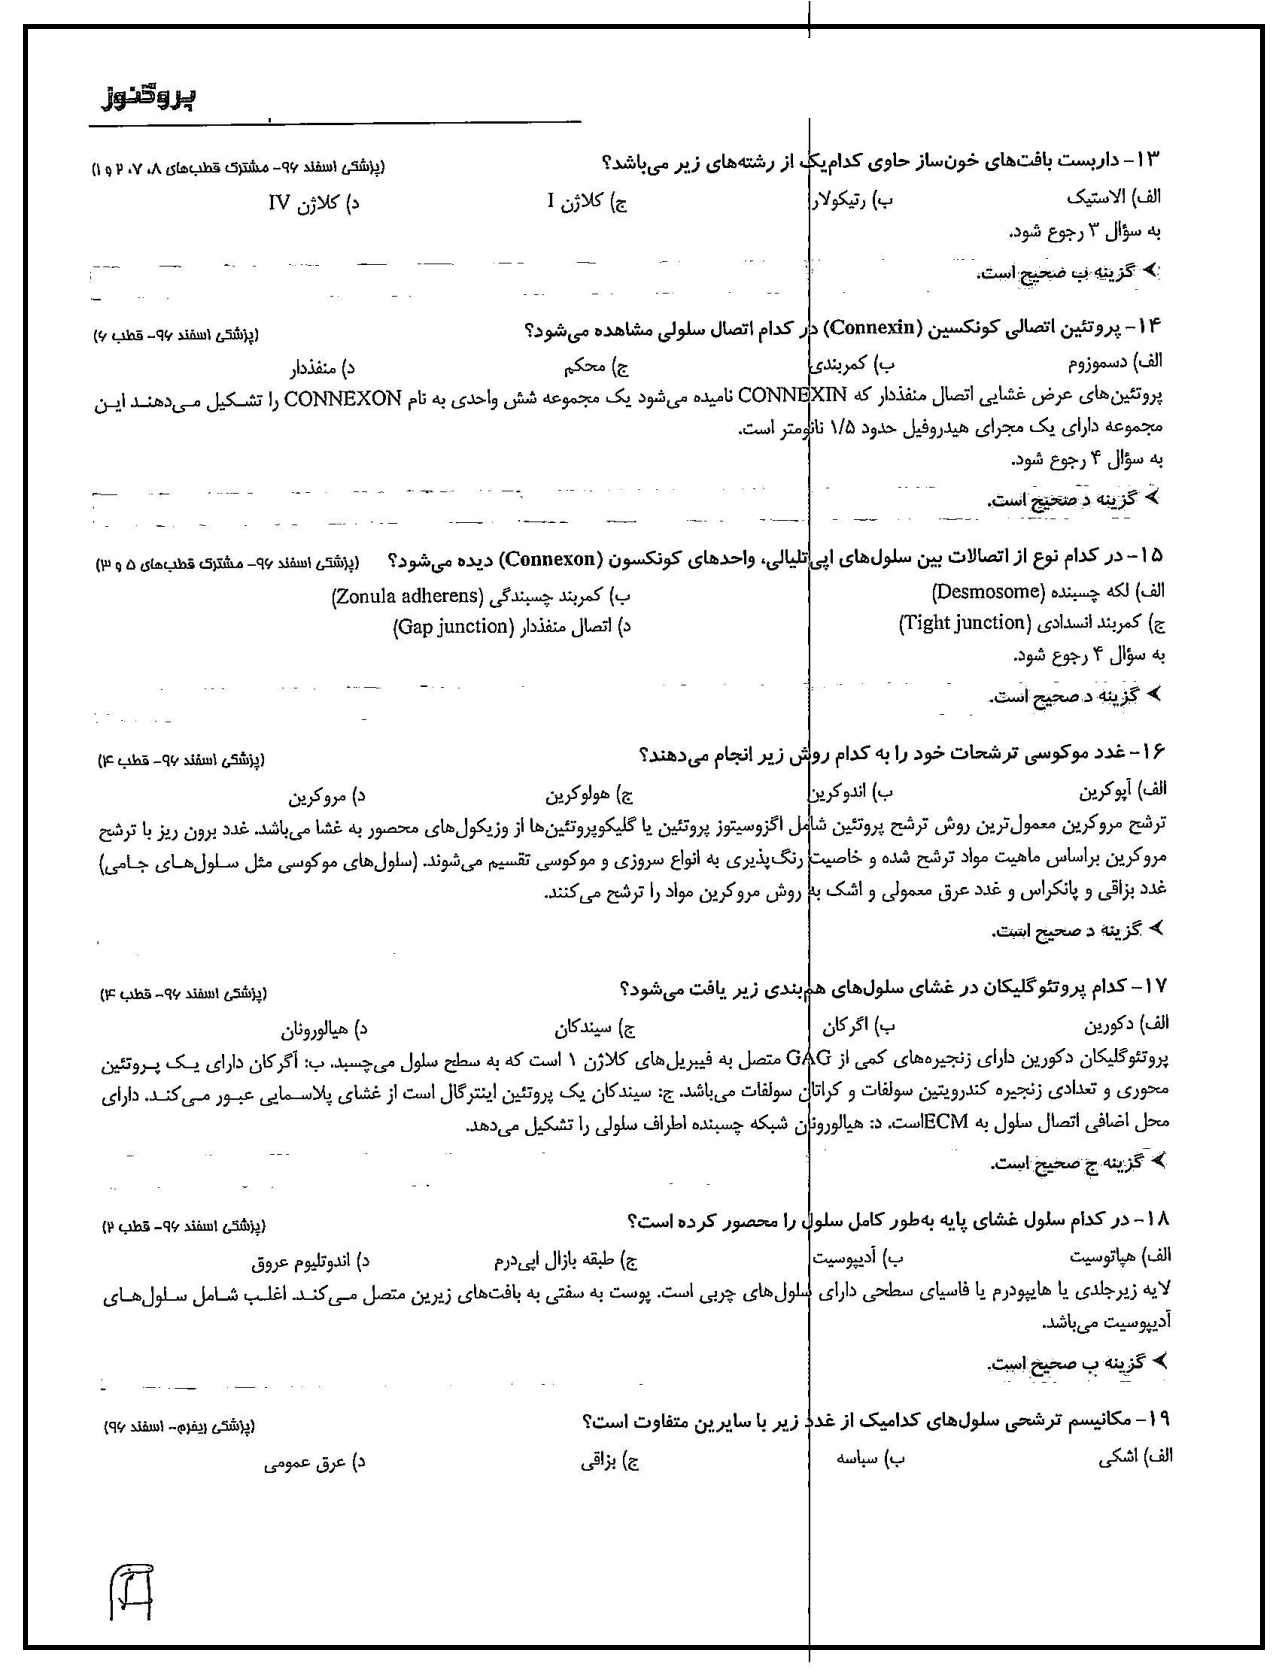 پروگنوز
۱۳- داربست بافت‌های خون‌ساز حاوی کدام‌یک از رشته‌های زیر می‌باشد؟ (پزشکی اسفند ۹۶- مشترک قطب‌های ۸، ۷، ۲ و ۱)
الف) الاستیک ب) رتیکولار ج) کلاژن I د) کلاژن IV
به سؤال ۳ رجوع شود.
➤ گزینه ب صحیح است.
۱۴- پروتئین اتصالی کونکسین (Connexin) در کدام اتصال سلولی مشاهده می‌شود؟ (پزشکی اسفند ۹۶- قطب ۶)
الف) دسموزوم ب) کمربندی ج) محکم د) منفذدار
پروتئین‌های عرض غشایی اتصال منفذدار که CONNEXIN نامیده می‌شود یک مجموعه شش واحدی به نام CONNEXON را تشکیل می‌دهند این
مجموعه دارای یک مجرای هیدروفیل حدود ۱/۵ نانومتر است.
به سؤال ۴ رجوع شود.
➤ گزینه د صحیح است.
۱۵- در کدام نوع از اتصالات بین سلول‌های اپی‌تلیالی، واحدهای کونکسون (Connexon) دیده می‌شود؟ (پزشکی اسفند ۹۶- مشترک قطب‌های ۵ و ۳)
الف) لکه چسبنده (Desmosome) ب) کمربند چسبندگی (Zonula adherens)
ج) کمربند انسدادی (Tight junction) د) اتصال منفذدار (Gap junction)
به سؤال ۴ رجوع شود.
➤ گزینه د صحیح است.
۱۶- غدد موکوسی ترشحات خود را به کدام روش زیر انجام می‌دهند؟ (پزشکی اسفند ۹۶- قطب ۴)
الف) آپوکرین ب) اندوکرین ج) هولوکرین د) مروکرین
ترشح مروکرین معمول‌ترین روش ترشح پروتئین شامل اگزوسیتوز پروتئین یا گلیکوپروتئین‌ها از وزیکول‌های محصور به غشا می‌باشد. غدد برون ریز با ترشح
مروکرین براساس ماهیت مواد ترشح شده و خاصیت رنگ‌پذیری به انواع سروزی و موکوسی تقسیم می‌شوند. (سلول‌های موکوسی مثل سلول‌های جامی)
غدد بزاقی و پانکراس و غدد عرق معمولی و اشک به روش مروکرین مواد را ترشح می‌کنند.
➤ گزینه د صحیح است.
۱۷- کدام پروتئوگلیکان در غشای سلول‌های هم‌بندی زیر یافت می‌شود؟ (پزشکی اسفند ۹۶- قطب ۴)
الف) دکورین ب) اگرکان ج) سیندکان د) هیالورونان
پروتئوگلیکان دکورین دارای زنجیره‌های کمی از GAG متصل به فیبریل‌های کلاژن ۱ است که به سطح سلول می‌چسبد. ب: آگرکان دارای یک پروتئین
محوری و تعدادی زنجیره کندرویتین سولفات و کراتان سولفات می‌باشد. ج: سیندکان یک پروتئین اینترگال است از غشای پلاسمایی عبور می‌کند. دارای
محل اضافی اتصال سلول به ECMاست. د: هیالورونان شبکه چسبنده اطراف سلولی را تشکیل می‌دهد.
➤ گزینه ج صحیح است.
۱۸- در کدام سلول غشای پایه به‌طور کامل سلول را محصور کرده است؟ (پزشکی اسفند ۹۶- قطب ۲)
الف) هپاتوسیت ب) آدیپوسیت ج) طبقه بازال اپی‌درم د) اندوتلیوم عروق
لایه زیرجلدی یا هایپودرم یا فاسیای سطحی دارای سلول‌های چربی است. پوست به سفتی به بافت‌های زیرین متصل می‌کند. اغلب شامل سلول‌های
آدیپوسیت می‌باشد.
➤ گزینه ب صحیح است.
۱۹- مکانیسم ترشحی سلول‌های کدامیک از غدد زیر با سایرین متفاوت است؟ (پزشکی ریفرم- اسفند ۹۶)
الف) اشکی ب) سباسه ج) بزاقی د) عرق عمومی